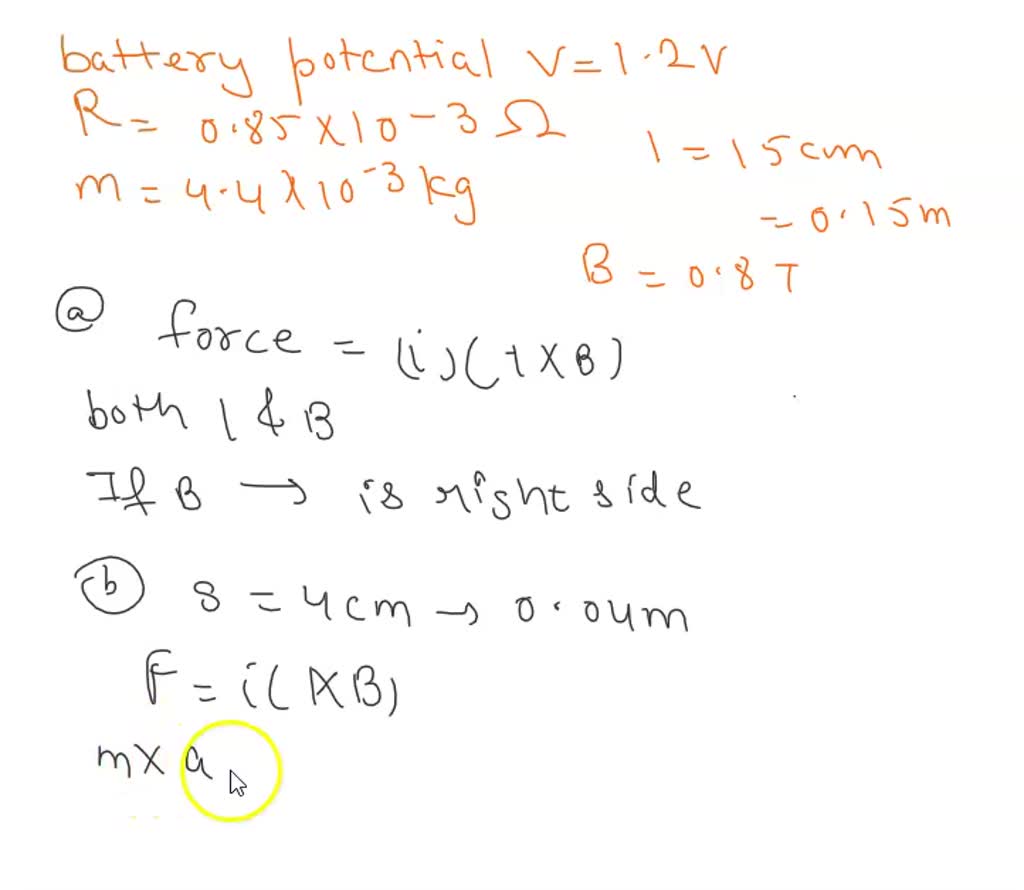 battery potential V=1.2V
R = 0.85 X 10-3 Ω
m = 4.4 X 10-3 kg
l = 15cm
= 0.15m
B = 0.8 T
(a) force = (i)(l X B)
both l & B
If B → is right side
(b) s = 4cm → 0.04m
F = i(l X B)
m X a